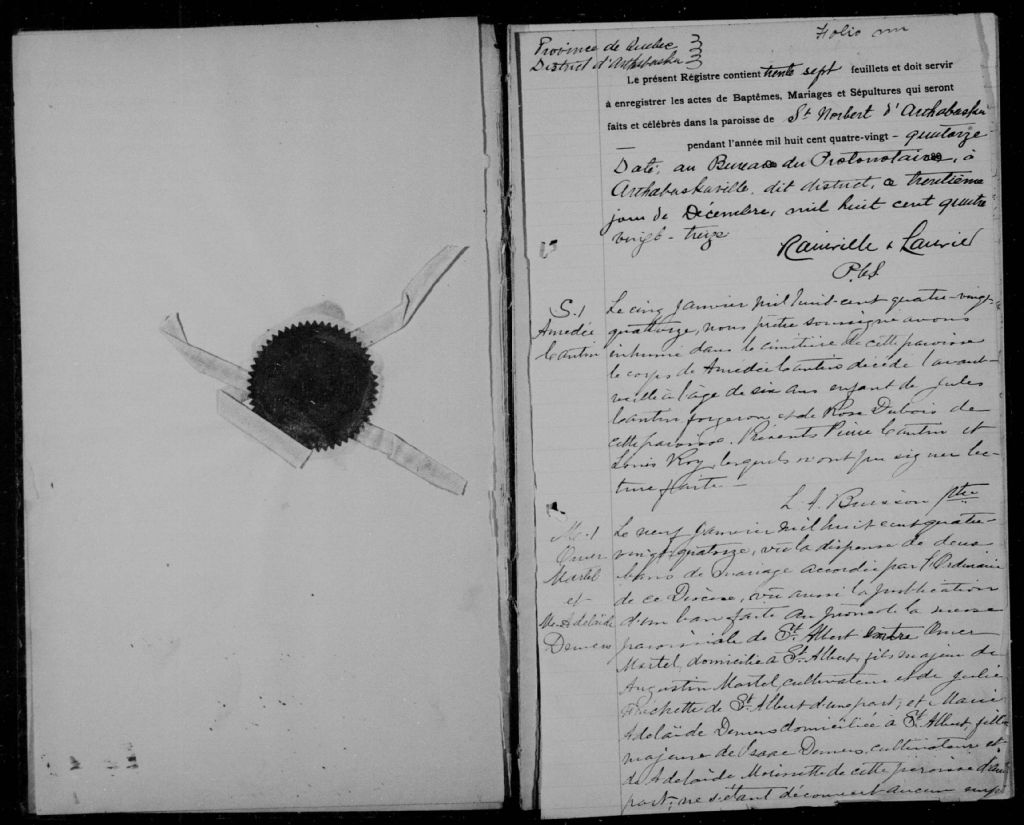 Folio
Province de Quebec
District d'Arthabaska
Le présent Régistre contient trente sept feuillets et doit servir
à enregistrer les actes de Baptêmes, Mariages et Sépultures qui seront
faits et célébrés dans la paroisse de St Norbert d'Arthabaska
pendant l'année mil huit cent quatre-vingt - quatorze
Daté, au Bureau du Protonotaire, à
Arthabaskaville, dit district, ce trentième
jour de Décembre, mil huit cent quatre
vingt - treize
Rainville & Laurier
P.C.S.
S. 1
Amédée
Cantin
Le cinq Janvier mil huit-cent quatre-vingt-
quatorze, nous prêtre soussigné avons
inhumé dans le cimitière de cette paroisse
le corps de Amédée Cantin décédé l'avant-
veille à l'âge de six ans enfant de Jules
Cantin forgeron, et de Rose Dubois de
cette paroisse. Présents Pierre Cantin et
Louis Roy, lesquels n'ont pu signer lec-
ture faite -
L. A. Buisson ptre
M. 1
Omer
Martel
et
M. Adélaïde
Demers
Le neuf Janvier mil huit cent quatre-
vingt quatorze, vu la dispense de deux
bans de mariage accordée par l'Ordinaire
de ce Diocèse, vu aussi la publication
d'un ban faite au prône de la messe
paroissiale de St Albert entre Omer
Martel, domicilié à St Albert, fils majeur de
Augustin Martel, cultivateur et de Julie
de St Albert d'une part; et Marie
Adelaïde Demers domiciliée à St Albert, fille
majeure de Isaac Demers, cultivateur et
de Adelaïde Morissette de cette paroisse d'autre
part; ne s'étant découvert aucun